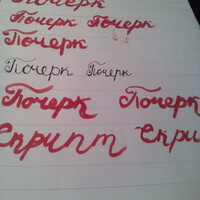 Почерк
Почерк Почерк
Почерк
Почерк Почерк
Почерк Почерк
Скрипт Скри